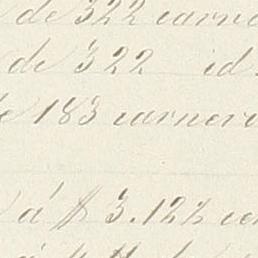 de 322 carne
de 322 id.
de 183 carnero
á $ 3.12½ ce